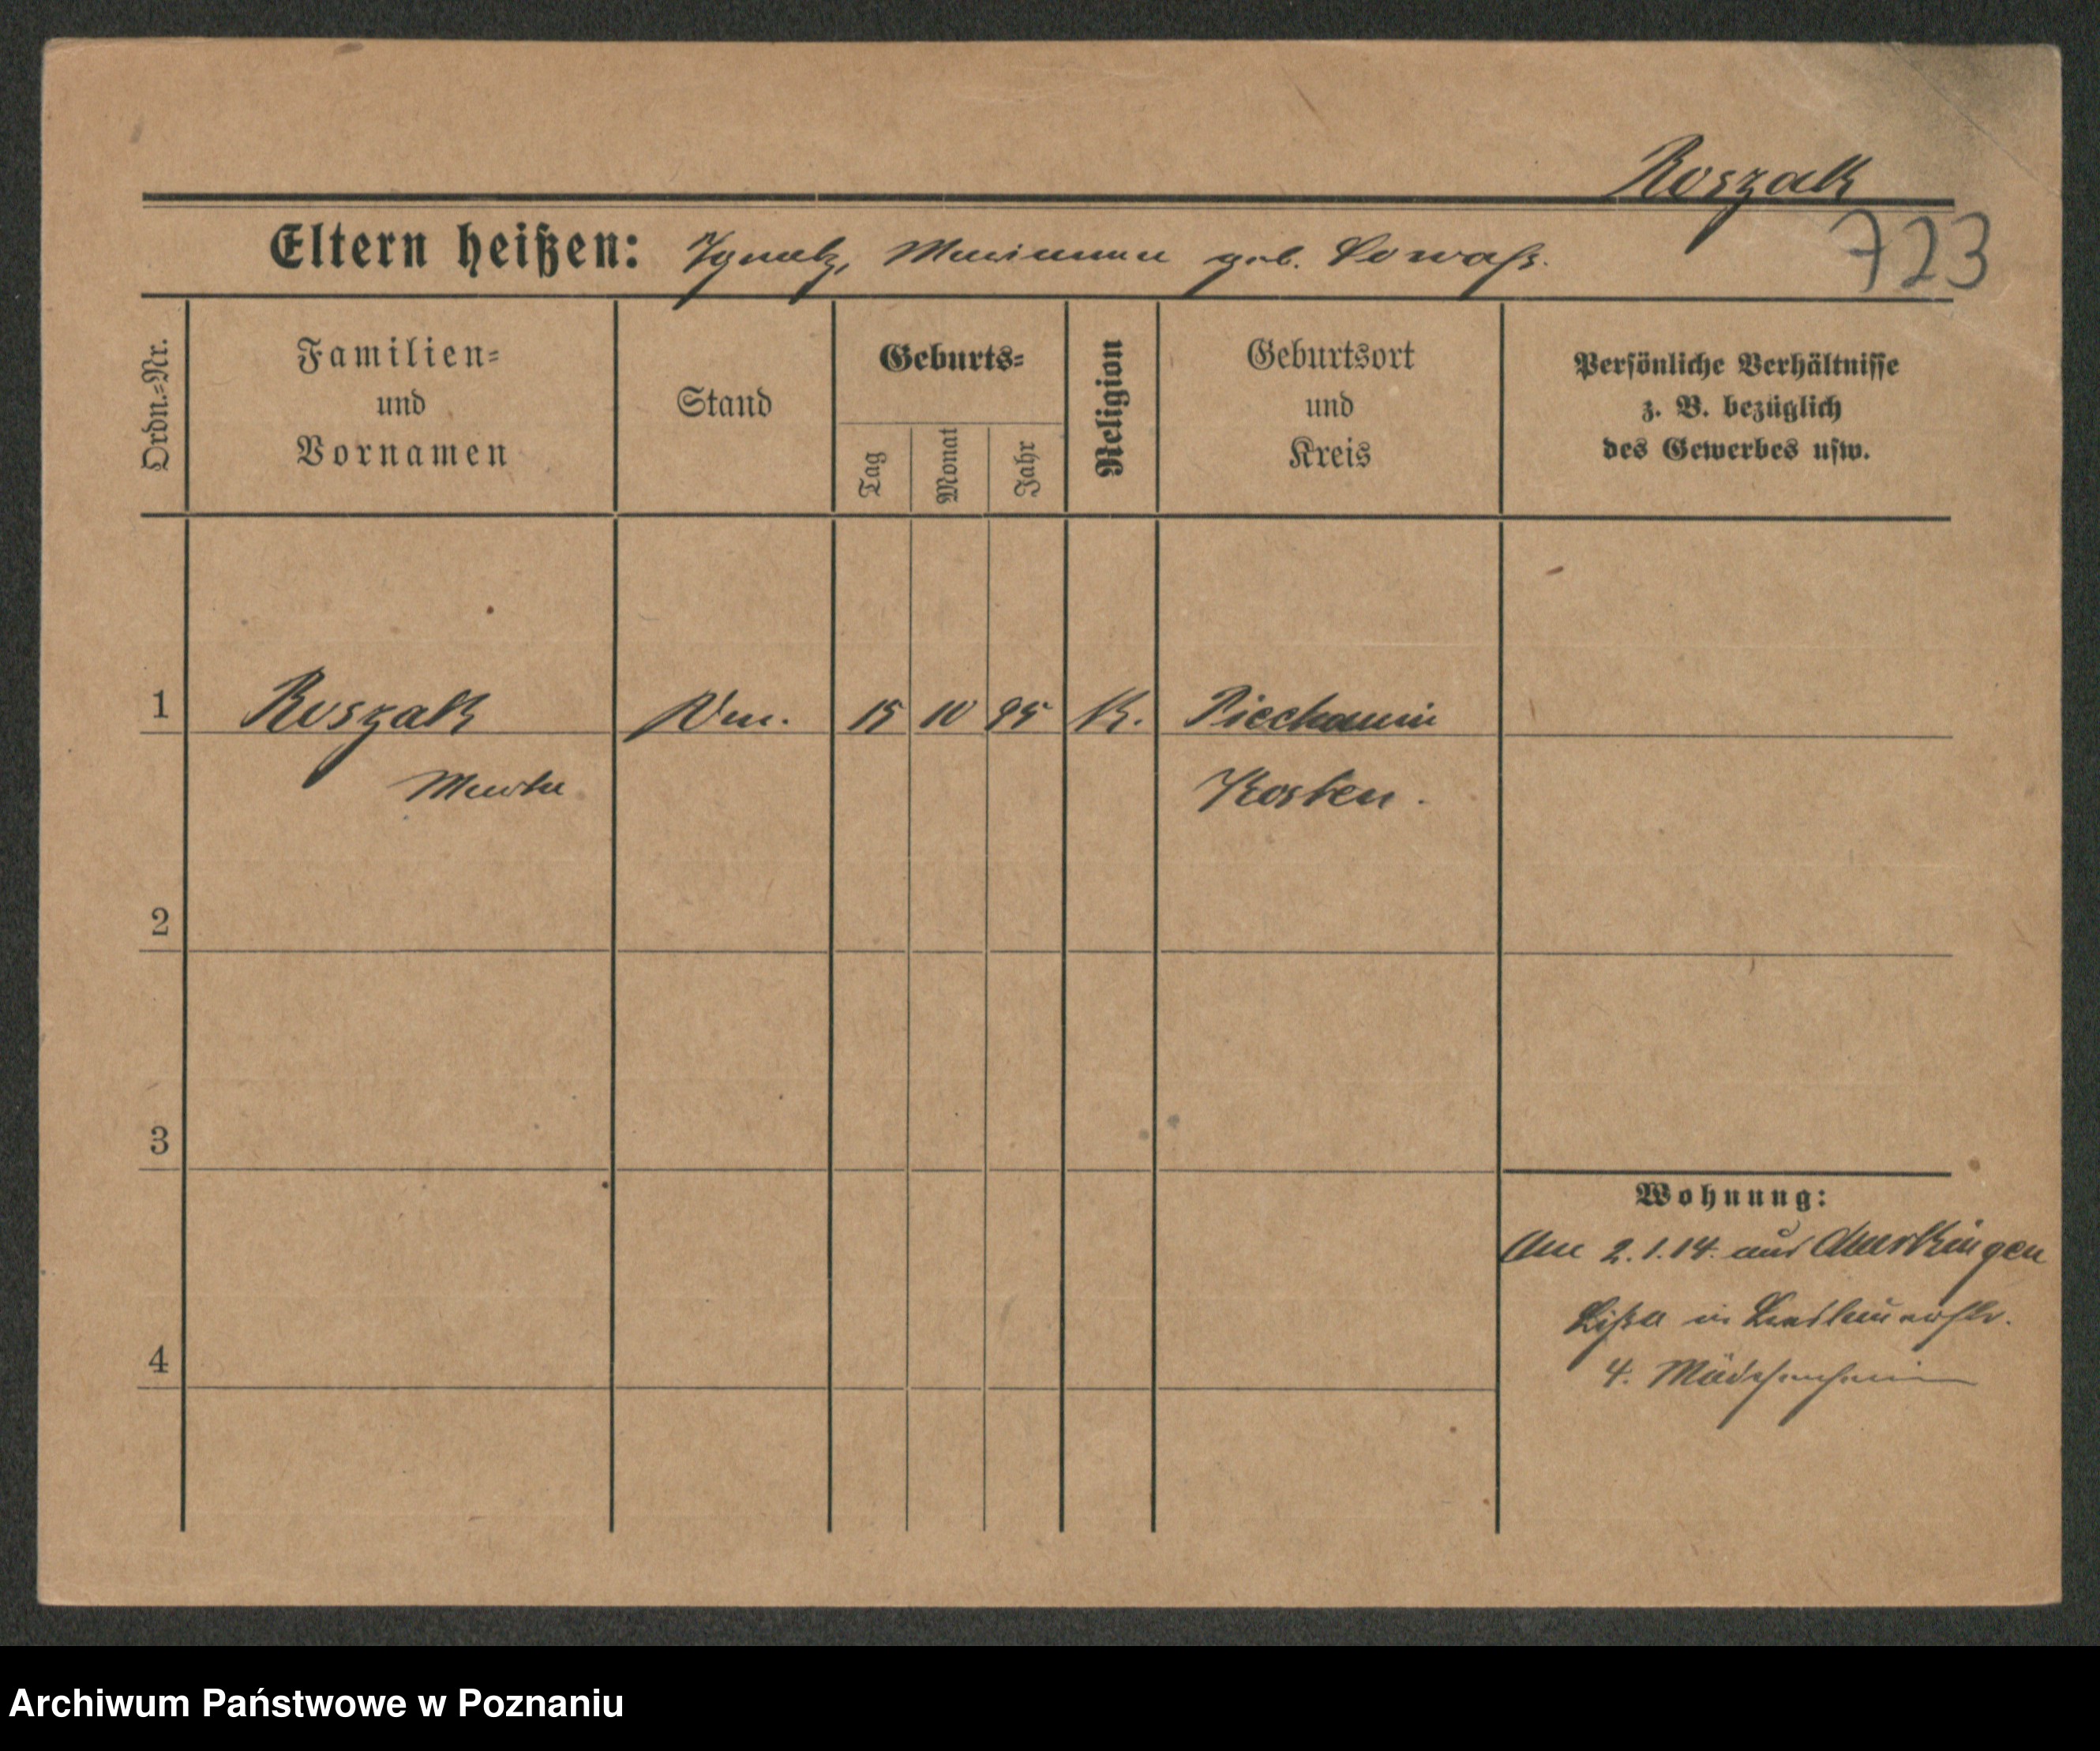 Roszak
723
Eltern heißen: Ignatz, Marianna geb. Nowak.
Ordn.-Nr.
Familien-
und
Vornamen
Stand
Geburts-
Tag
Monat
Jahr
Religion
Geburtsort
und
Kreis
Persönliche Verhältnisse
z. B. bezüglich
des Gewerbes usw.
1
Roszak
15
10
95
K.
Kosten.
2
3
Wohnung:
2.1.14. aus
Lissa in
4
4. Mädchenheim
Archiwum Państwowe w Poznaniu